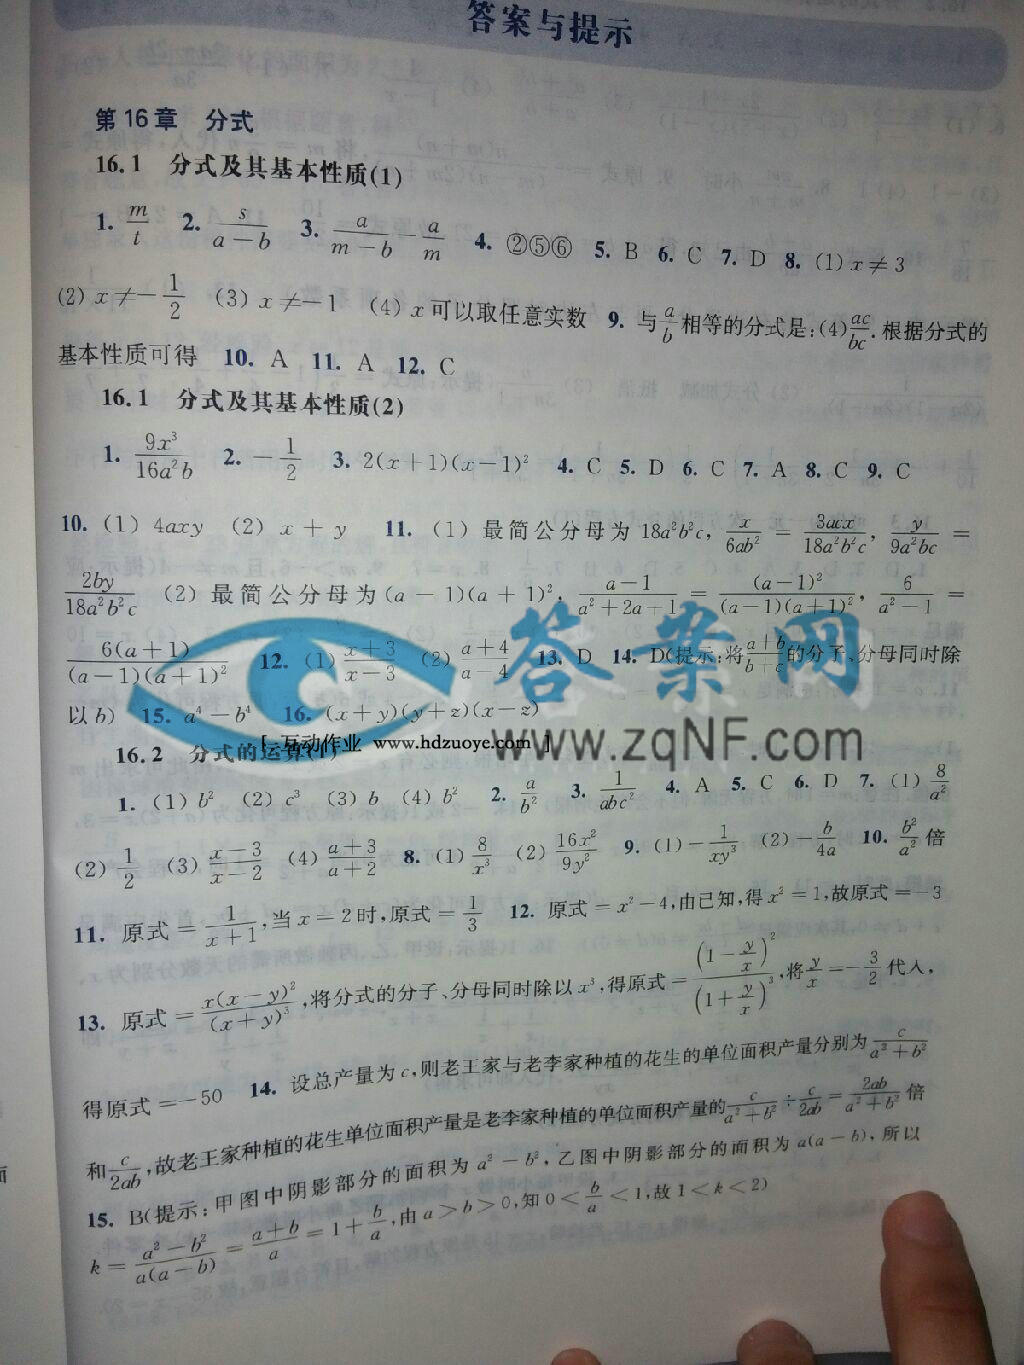 答案与提示
第16章 分式
16.1 分式及其基本性质(1)
1. m/t 2. s/(a-b) 3. a/(m-b) - a/m 4. ②⑤⑥ 5. B 6. C 7. D 8. (1) x≠3
(2) x≠-1/2 (3) x≠-1 (4) x可以取任意实数 9. 与a/b相等的分式是:(4)ac/bc. 根据分式的
基本性质可得 10. A 11. A 12. C
16.1 分式及其基本性质(2)
1. 9x³/16a²b 2. -1/2 3. 2(x+1)(x-1)² 4. C 5. D 6. C 7. A 8. C 9. C
10. (1) 4axy (2) x+y 11. (1) 最简公分母为18a²b²c, x/6ab² = 3acx/18a²b²c, y/9a²bc =
2by/18a²b²c (2) 最简公分母为(a-1)(a+1)², (a-1)/(a²+2a+1) = (a-1)²/((a-1)(a+1)²), 6/(a²-1) =
6(a+1)/((a-1)(a+1)²) 12. (1) (x+3)/(x-3) (2) (a+4)/(a-4) 13. D 14. D(提示:将(a+b)/(b+c)的分子、分母同时除
以b) 15. a⁴-b⁴ 16. (x+y)(y+z)(x-z)
16.2 分式的运算(1)
1. (1) b² (2) c³ (3) b (4) b² 2. a/b² 3. 1/abc² 4. A 5. C 6. D 7. (1) 8/a²
(2) 1/2 (3) (x-3)/(x-2) (4) (a+3)/(a+2) 8. (1) 8/x³ (2) 16x²/9y² 9. (1) -1/xy³ (2) -b/4a 10. b²/a²倍
11. 原式=1/(x+1),当x=2时,原式=1/3 12. 原式=x²-4,由已知,得x²=1,故原式=-3
13. 原式=x(x-y)²/(x+y)³,将分式的分子、分母同时除以x³,得原式=(1-y/x)²/(1+y/x)³,将y/x=-3/2代入,
得原式=-50 14. 设总产量为c,则老王家与老李家种植的花生的单位面积产量分别为c/(a²+b²)
和c/2ab,故老王家种植的花生单位面积产量是老李家种植的单位面积产量的c/(a²+b²)÷c/2ab=2ab/(a²+b²)倍
15. B(提示:甲图中阴影部分的面积为a²-b²,乙图中阴影部分的面积为a(a-b),所以
k=(a²-b²)/(a(a-b))=(a+b)/a=1+b/a,由a>b>0,知0<b/a<1,故1<k<2)
答案网
www.zqNF.com
[ 互动作业 www.hdzuoye.com ]